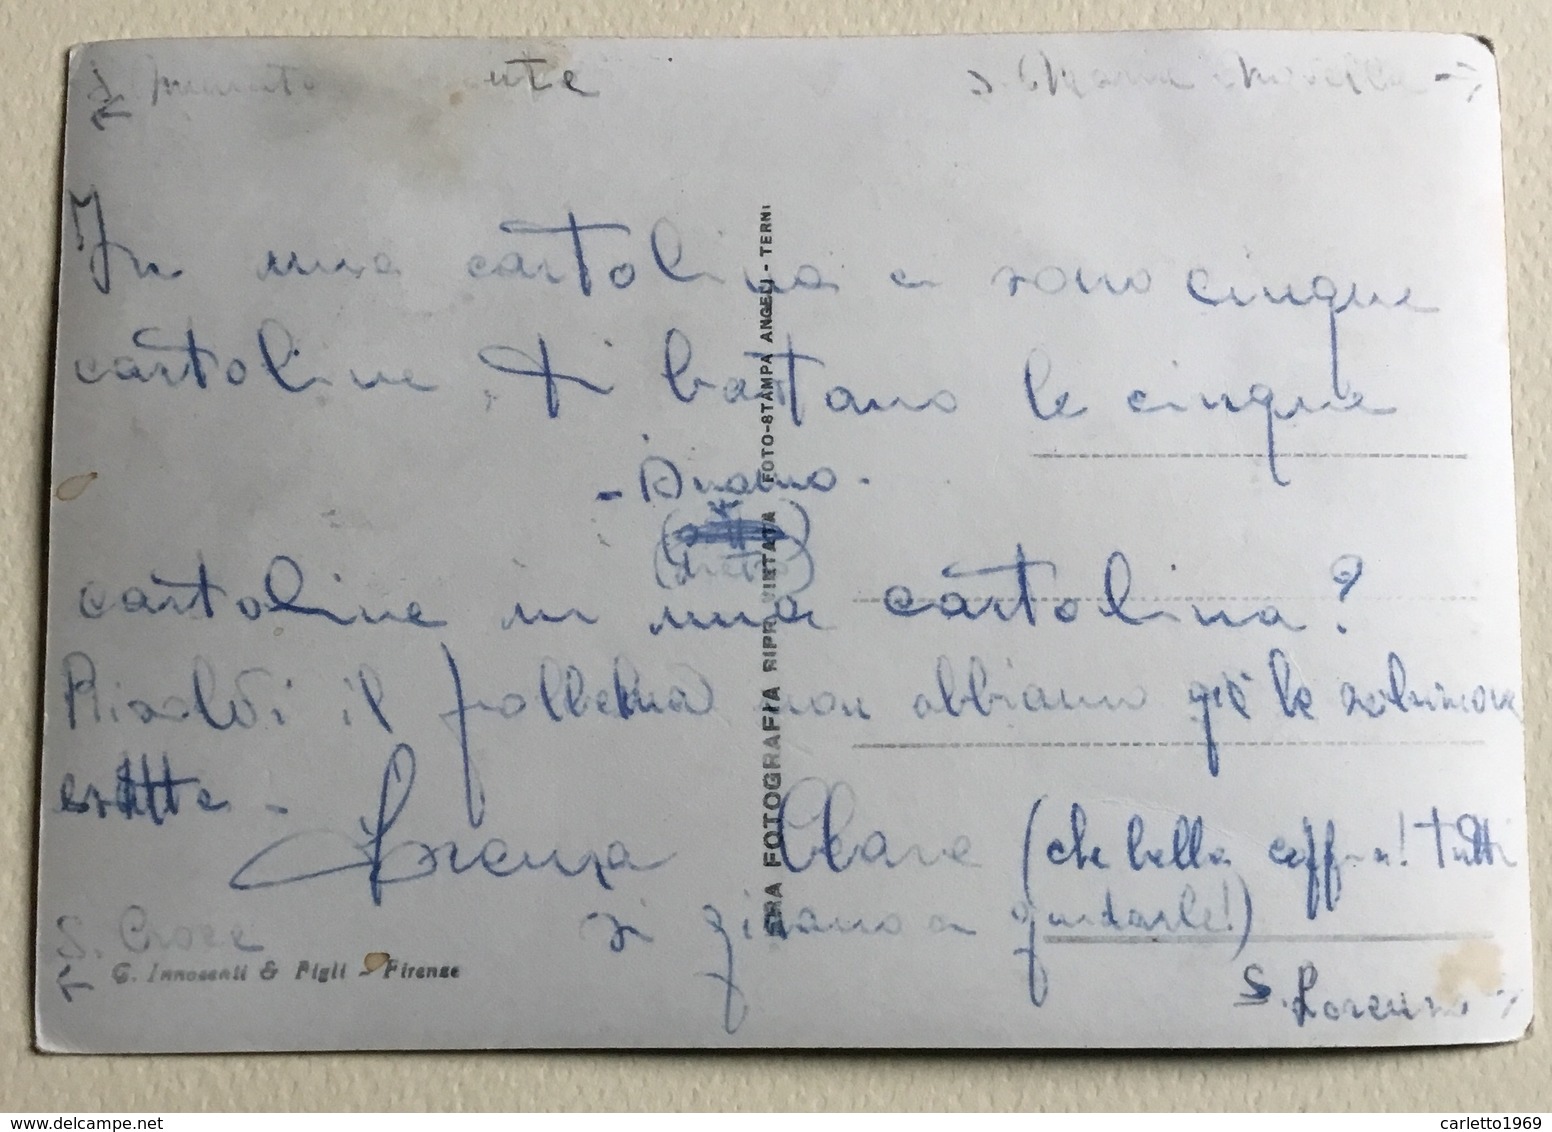 In una cartolina ci sono cinque
cartoline, ti bastano le cinque
- Duomo -
(dietro)
cartoline in una cartolina?
Risolvi il problema non abbiamo già le soluzioni
esatte -
Lorenza Chiara (che bella ceffra! Tutti
si girano a guardarle!)
S. Croce
S. Lorenzo
G. Innocenti & Figli - Firenze
VERA FOTOGRAFIA RIPR. VIETATA FOTO-STAMPA ANGELI - TERNI
carletto1969